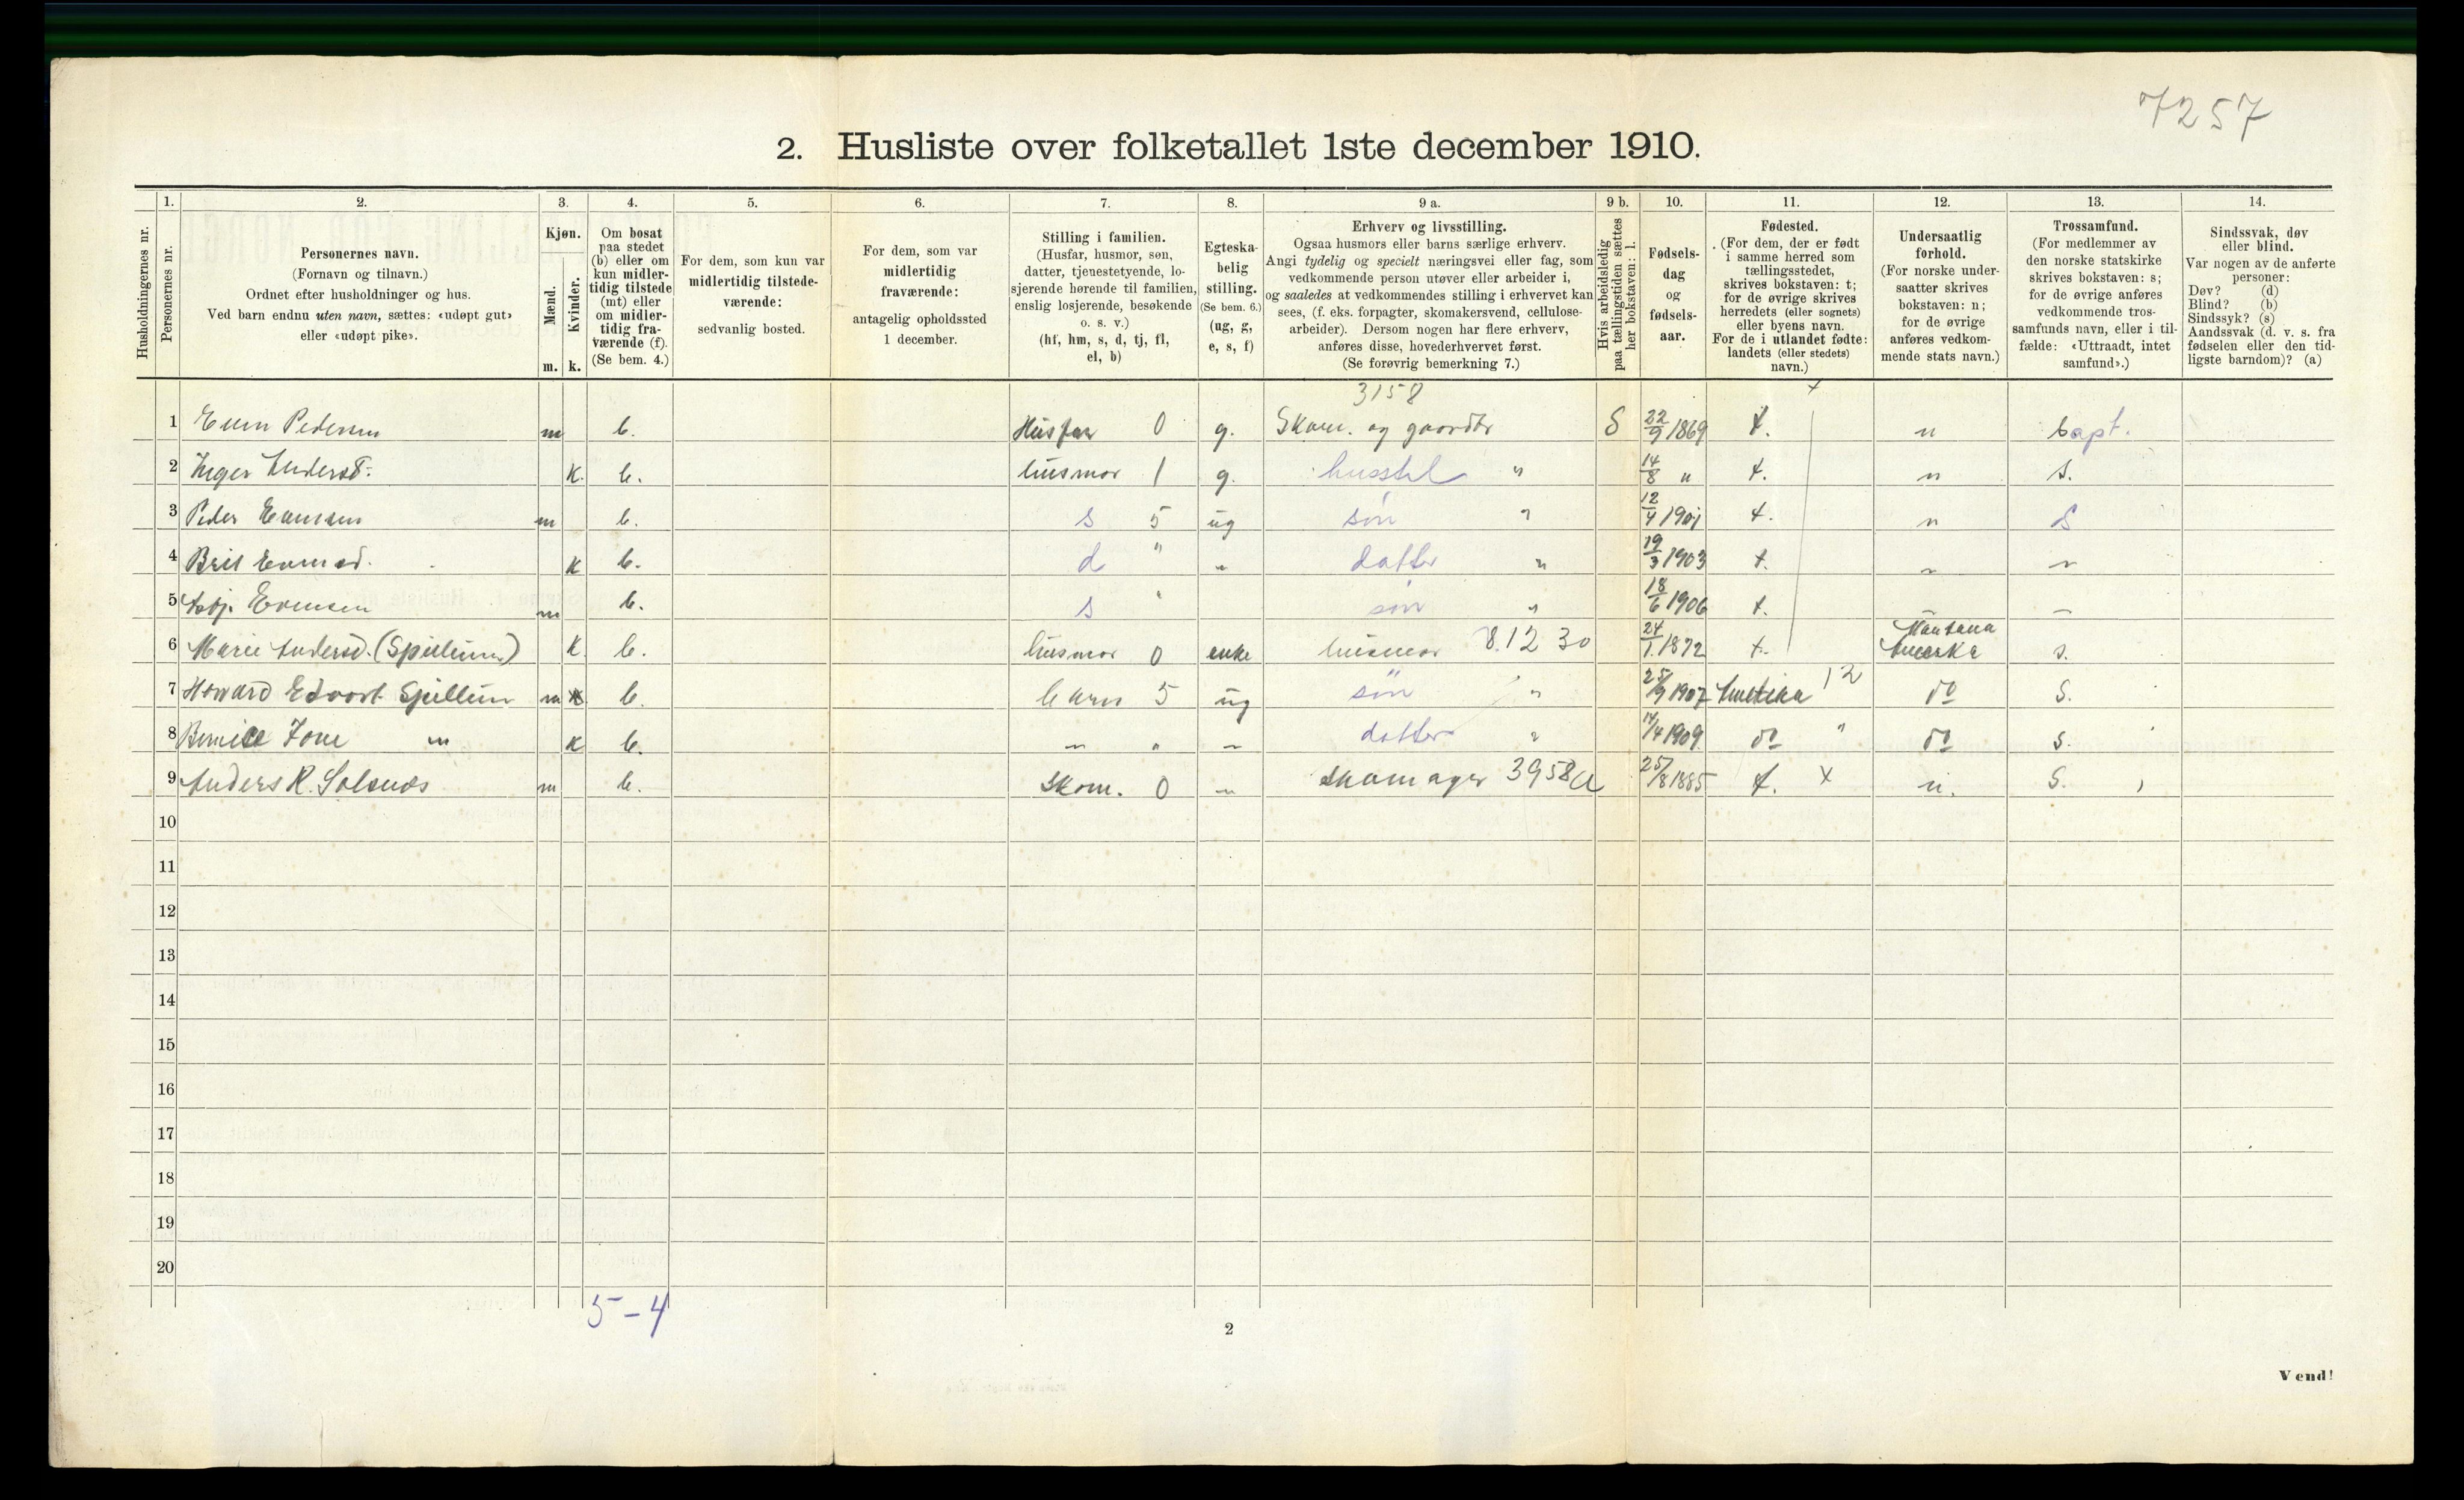 7257
2. Husliste over folketallet 1ste december 1910.
Husholdningernes nr.
1. Personernes nr.
2. Personernes navn.
(Fornavn og tilnavn.)
Ordnet efter husholdninger og hus.
Ved barn endnu uten navn, sættes: «udøpt gut»
eller «udøpt pike».
3. Kjøn.
Mænd. m.
Kvinder. k.
4. Om bosat
paa stedet
(b) eller om
kun midler-
tidig tilstede
(mt) eller
om midler-
tidig fra-
værende (f).
(Se bem. 4.)
5. For dem, som kun var
midlertidig tilstede-
værende:
sedvanlig bosted.
6. For dem, som var
midlertidig
fraværende:
antagelig opholdssted
1 december.
7. Stilling i familien.
(Husfar, husmor, søn,
datter, tjenestetyende, lo-
sjerende hørende til familien,
enslig losjerende, besøkende
o. s. v.)
(hf, hm, s, d, tj, fl,
el, b)
8. Egteska-
belig
stilling.
(Se bem. 6.)
(ug, g,
e, s, f)
9 a. Erhverv og livsstilling.
Ogsaa husmors eller barns særlige erhverv.
Angi tydelig og specielt næringsvei eller fag, som
vedkommende person utøver eller arbeider i,
og saaledes at vedkommendes stilling i erhvervet kan
sees, (f. eks. forpagter, skomakersvend, cellulose-
arbeider). Dersom nogen har flere erhverv,
anføres disse, hovederhvervet først.
(Se forøvrig bemerkning 7.)
9 b. Hvis arbeidsledig
paa tællingstiden sættes
her bokstaven: l.
10. Fødsels-
dag
og
fødsels-
aar.
11. Fødested.
(For dem, der er født
i samme herred som
tællingsstedet,
skrives bokstaven: t;
for de øvrige skrives
herredets (eller sognets)
eller byens navn.
For de i utlandet fødte:
landets (eller stedets)
navn.)
12. Undersaatlig
forhold.
(For norske under-
saatter skrives
bokstaven: n;
for de øvrige
anføres vedkom-
mende stats navn.)
13. Trossamfund.
(For medlemmer av
den norske statskirke
skrives bokstaven: s;
for de øvrige anføres
vedkommende tros-
samfunds navn, eller i til-
fælde: «Uttraadt, intet
samfund».)
14. Sindssvak, døv
eller blind.
Var nogen av de anførte
personer:
Døv? (d)
Blind? (b)
Sindssyk? (s)
Aandssvak (d. v. s. fra
fødselen eller den tid-
ligste barndom)? (a)
3158 x
1 Pedersen m b. Husfar 0 g. Skom. og gaardbr S 22/9 1869 t. n bapt.
2 Inger k. b. husmor 1 g. husstel " 14/8 " t. n s.
3 Peder m b. s 5 ug søn " 12/4 1901 t. n S
4 Brit k b. d " " datter " 19/3 1903 t. " "
5 Evensen m b. s " søn " 18/6 1906 t.
Montana
6 Marie Andersd. (Spillum) k. b. husmor 0 enke husmor 8.12 30 24/1 1872 t. Amerka s.
7 Howard Edvart Spillum m b. barn 5 ug søn " 25/9 1907 Amerika 12 do S.
8 Bernice " k b. " " " datter " 14/4 1909 do " do S.
9 Anders R. Solsnæs m b. Skom. 0 " skomager 3958a 25/8 1885 t. x n. S.
10
11
12
13
14
15
16
17
18
19
20
5-4
2
Vend!